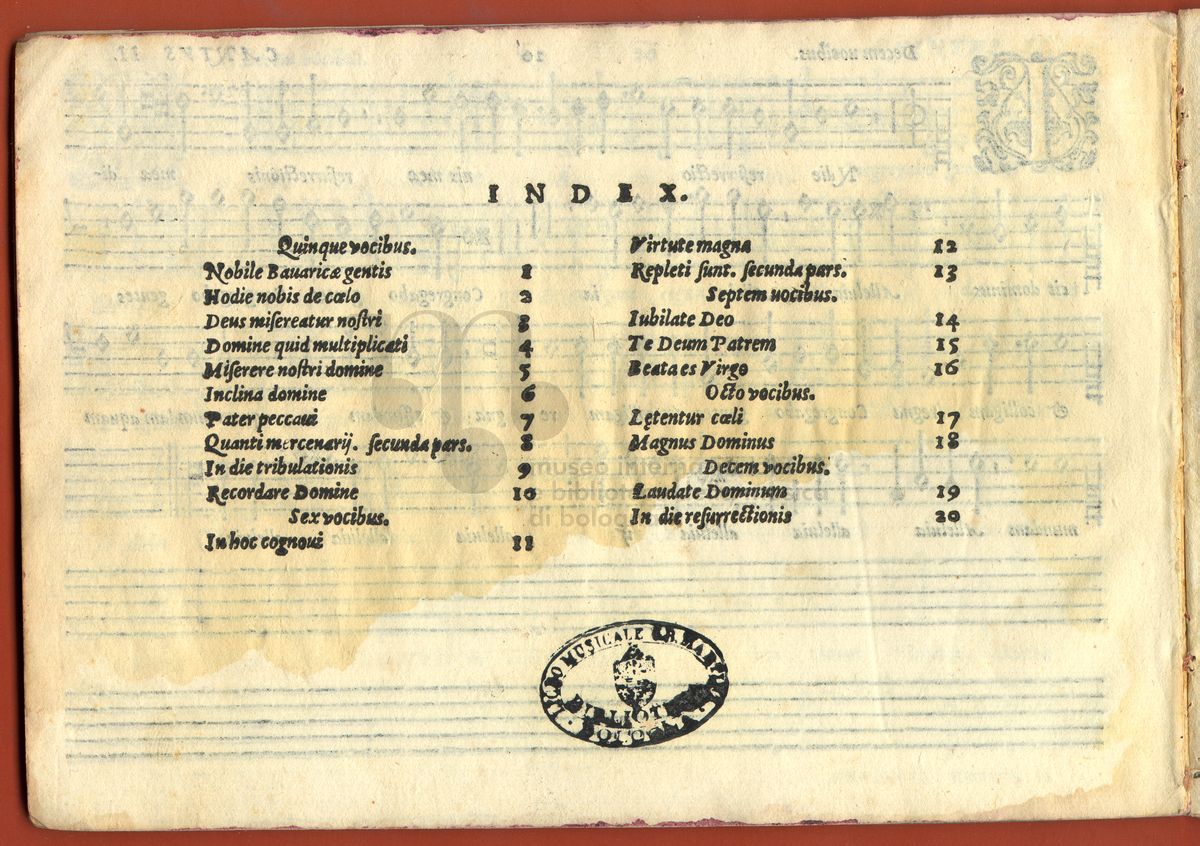 INDEX.
Quinque vocibus.
Nobile Bauaricæ gentis 1
Hodie nobis de cœlo 2
Deus misereatur nostri 3
Domine quid multiplicati 4
Miserere nostri domine 5
Inclina domine 6
Pater peccaui 7
Quanti mercenarij. secunda pars. 8
In die tribulationis 9
Recordare Domine 10
Sex vocibus.
In hoc cognoui 11
Virtute magna 12
Repleti sunt. secunda pars. 13
Septem uocibus.
Iubilate Deo 14
Te Deum Patrem 15
Beata es Virgo 16
Octo vocibus.
Lętentur cœli 17
Magnus Dominus 18
Decem vocibus.
Laudate Dominum 19
In die resurrectionis 20
museo
e biblioteca
di bologna
MUSICALE